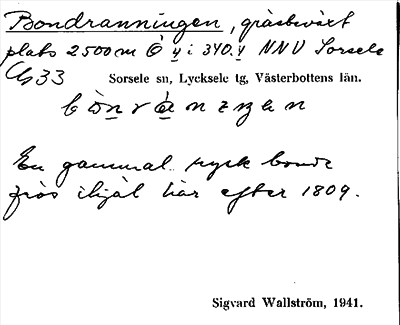 Bondranningen, gräsbeväxt
plats 2500 m Ö y i 340.y NNV Sorsele
33 Sorsele sn, Lycksele tg, Västerbottens län.
En gammal rysk bonde
frös ihjäl här efter 1809.
Sigvard Wallström, 1941.